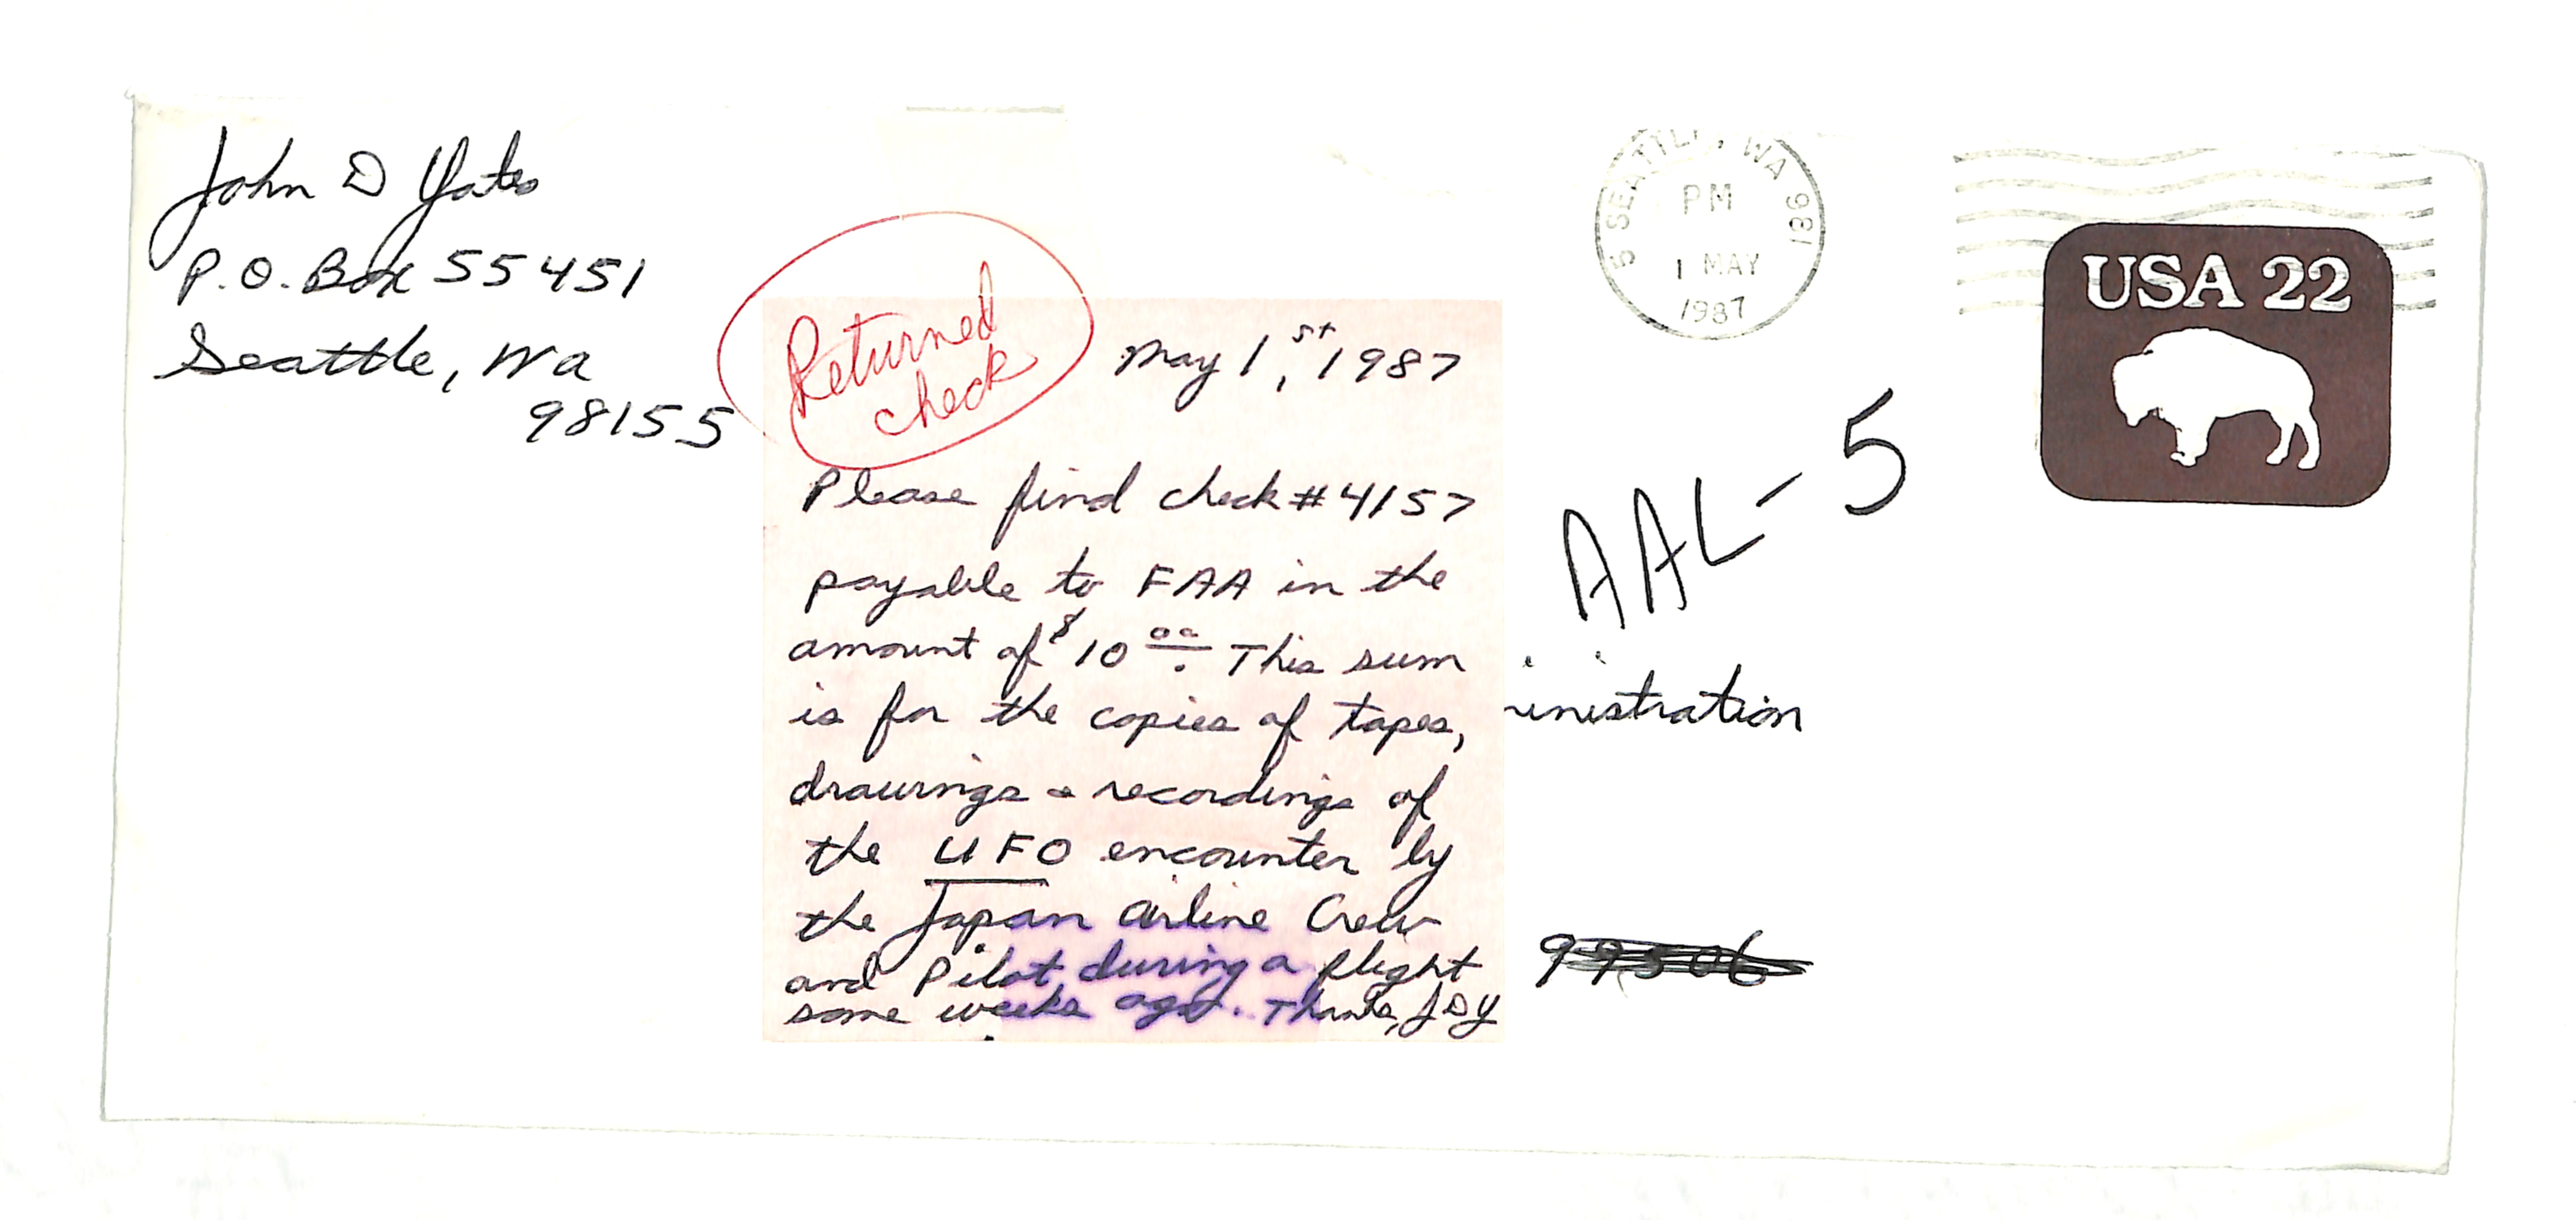 John D Yates
P.O. Box 55451
Seattle, Wa
98155
5 SEATTLE, WA 981
PM
1 MAY
1987
USA 22
Returned
check
May 1st, 1987
Please find check #4157
payable to FAA in the
amount of $10 00. This sum
is for the copies of tapes,
drawings & recordings of
the UFO encounter by
the Japan Airline Crew
and Pilot during a flight
some weeks ago. Thanks, JDY
AAL-5
inistration
99506